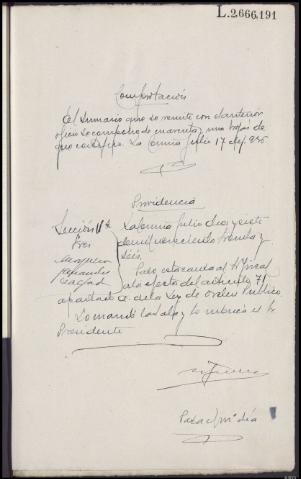 L.2.666.191
Compostación
El Sumario que se remite con el anterior
oficio se compone de cuarenta y una hojas de
que certifico. La Coruña Julio 17 de 1936
Providencia
Sección 1ª
Sres
La Coruña Julio diez y siete
de mil novecientos treinta y
séis.
Pase esta causa al M. Fiscal
a los efectos del artículo 71
apartado a. de la Ley de Orden Público
Lo mandó la Sala y lo rubrica el Sr
Presidente
Pasa al mº día